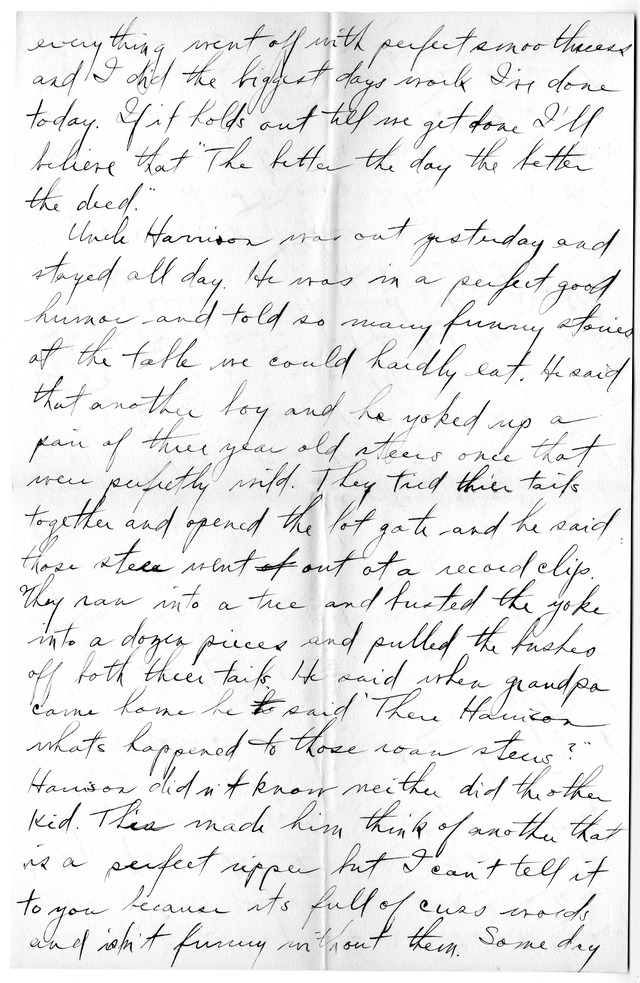 everything went off with perfect smoothness
and I did the biggest days work I've done
today. If it holds out till we get done I'll
believe that "The better the day the better
the deed."
Uncle Harrison was out yesterday and
stayed all day. He was in a perfect good
humor and told so many funny stories
at the table we could hardly eat. He said
that another boy and he yoked up a
pair of three year old steers once that
were perfectly wild. They tied thier tails
together and opened the lot gate and he said
those steers went of out at a record clip.
They ran into a tree and busted the yoke
into a dozen pieces and pulled the bushes
off both thier tails. He said when grandpa
came home he to said "There Harrison
whats happened to those roan steers?"
Harrison didn't know neither did the other
kid. This made him think of another that
is a perfect ripper but I can't tell it
to you because its full of cuss words
and isn't funny without them. Some day